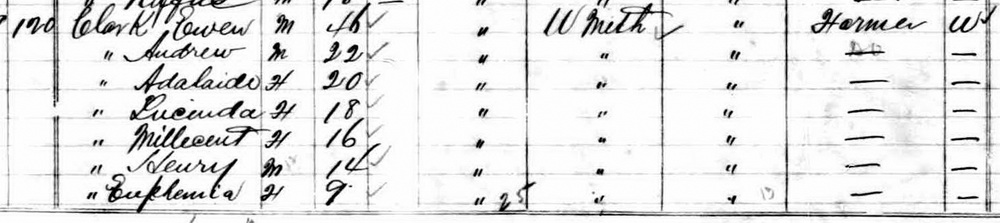 120 Clark Ewen M 46 " W Meth " Farmer W
" Andrew M 22 " " " —
" Adalaide F 20 " " " — —
" Lucinda F 18 " " " — —
" Millecent F 16 " " " — —
" Henry M 14 " " " — —
" Euphemia F 9 " 25 " " — —